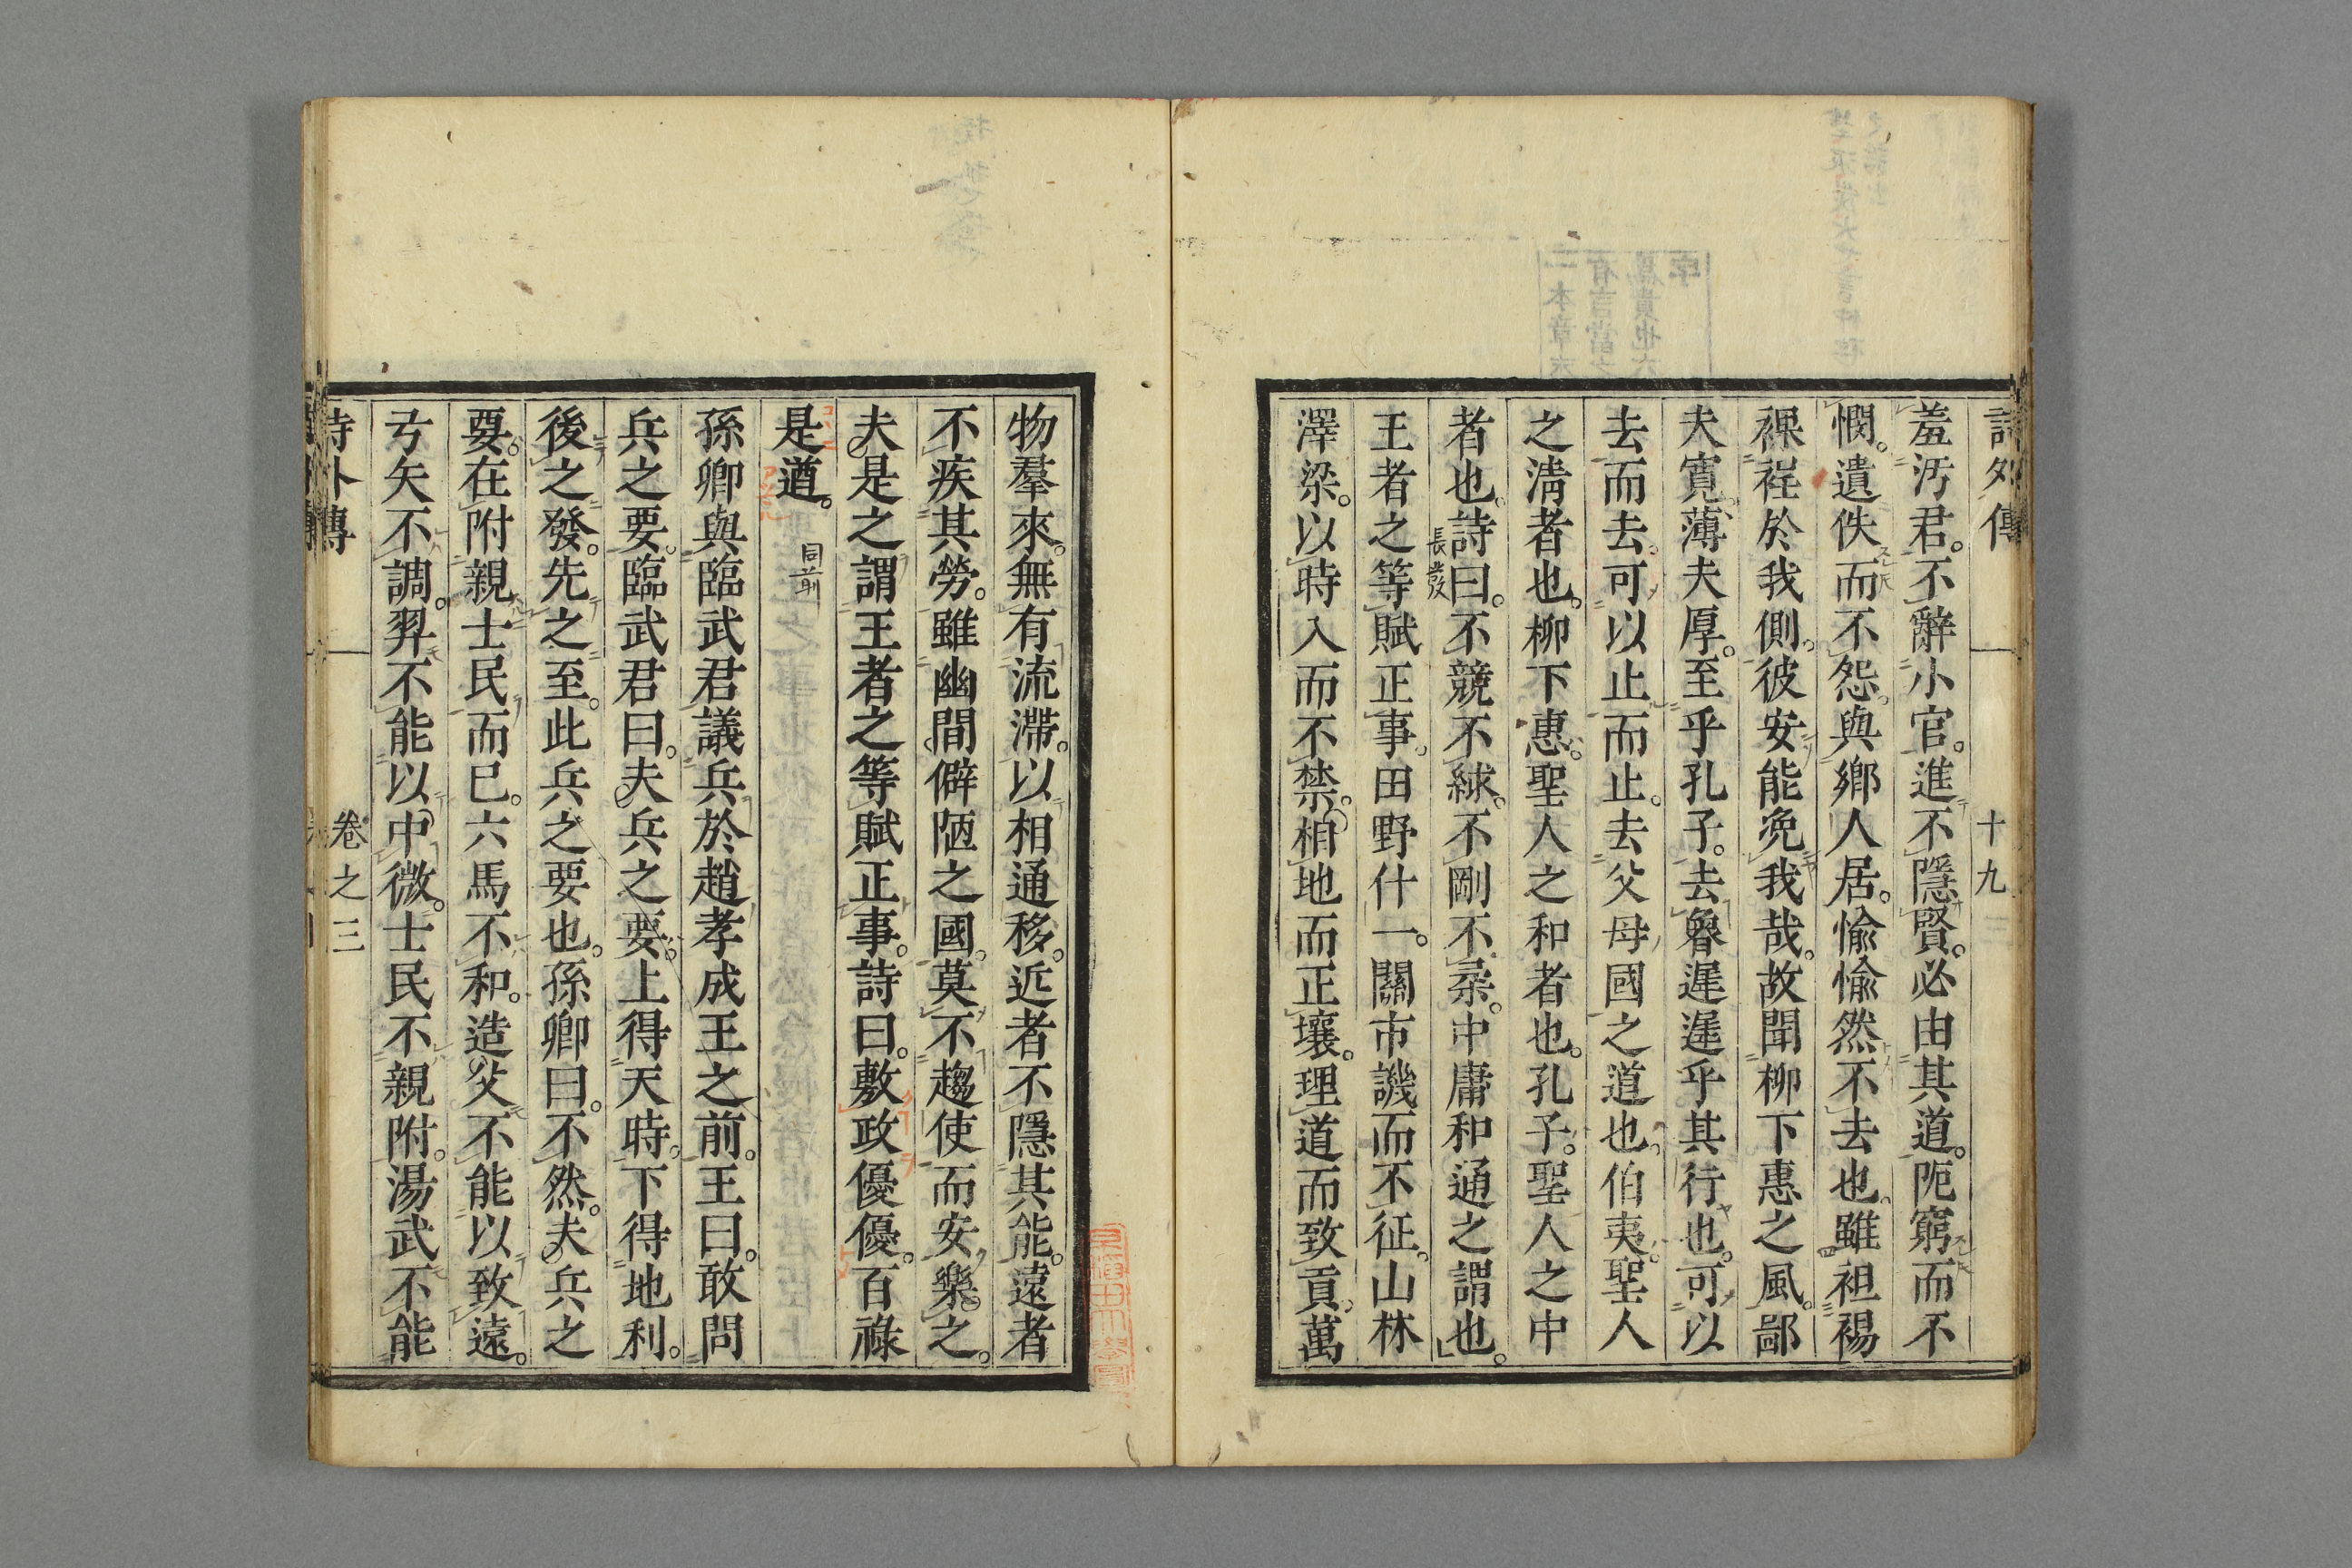 詩外傳 十九
羞汚君。不辭小官。進不隱賢。必由其道。阨窮而不
憫。遺佚而不怨。與鄉人居。愉愉然不去也。雖袒裼
裸裎於我側。彼安能浼我哉。故聞柳下惠之風。鄙
夫寬。薄夫厚。至乎孔子。去魯遲遲乎其行也。可以
去而去。可以止而止。去父母國之道也。伯夷。聖人
之淸者也。柳下惠。聖人之和者也。孔子。聖人之中
者也。詩曰。不競不絿。不剛不柔。中庸和通之謂也。
長發
王者之等賦正事。田野什一。關市譏而不征。山林
澤梁。以時入而不禁。相地而正壤。理道而致貢。萬
物羣來。無有流滯。以相通移。近者不隱其能。遠者
不疾其勞。雖幽間僻陋之國。莫不趨使而安樂之。
夫是之謂王者之等賦正事。詩曰。敷政優優。百祿
是遒。
同前
孫卿與臨武君議兵於趙孝成王之前。王曰。敢問
兵之要。臨武君曰。夫兵之要。上得天時。下得地利。
後之發。先之至。此兵之要也。孫卿曰。不然。夫兵之
要。在附親士民而已。六馬不和。造父不能以致遠。
弓矢不調。羿不能以中微。士民不親附。湯武不能
詩外傳 卷之三